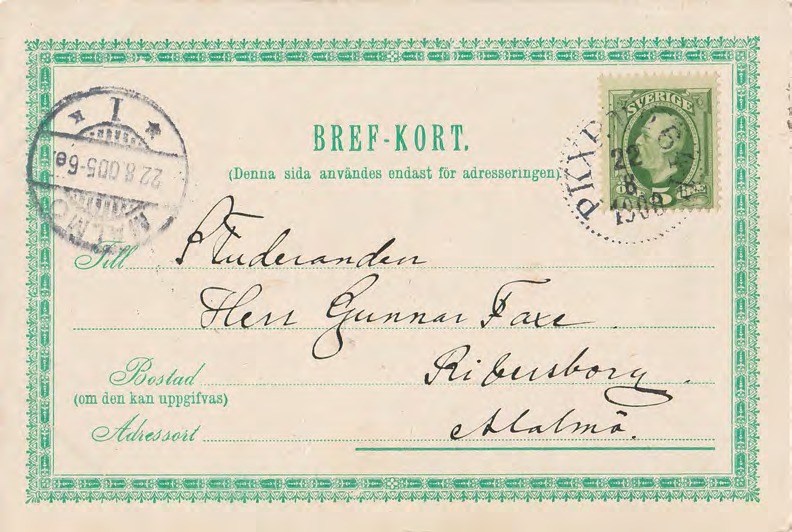 BREF-KORT.
(Denna sida användes endast för adresseringen)
SVERIGE
5 ÖRE
PKXP
22
8
1900
1
22 8 00 5-6 e
MALMÖ
Till Studeranden
Herr Gunnar Faxe
Bostad Ribersborg.
(om den kan uppgifvas)
Adressort Malmö.